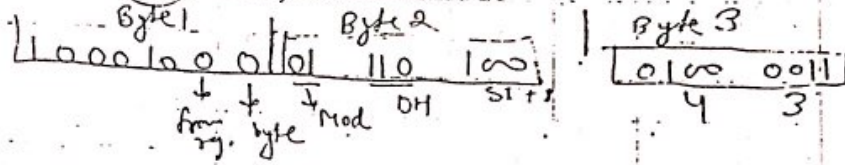 Byte 1 Byte 2 Byte 3
1000100 0 01 110 100 0100 0011
from reg. byte Mod DH SI + 4 3